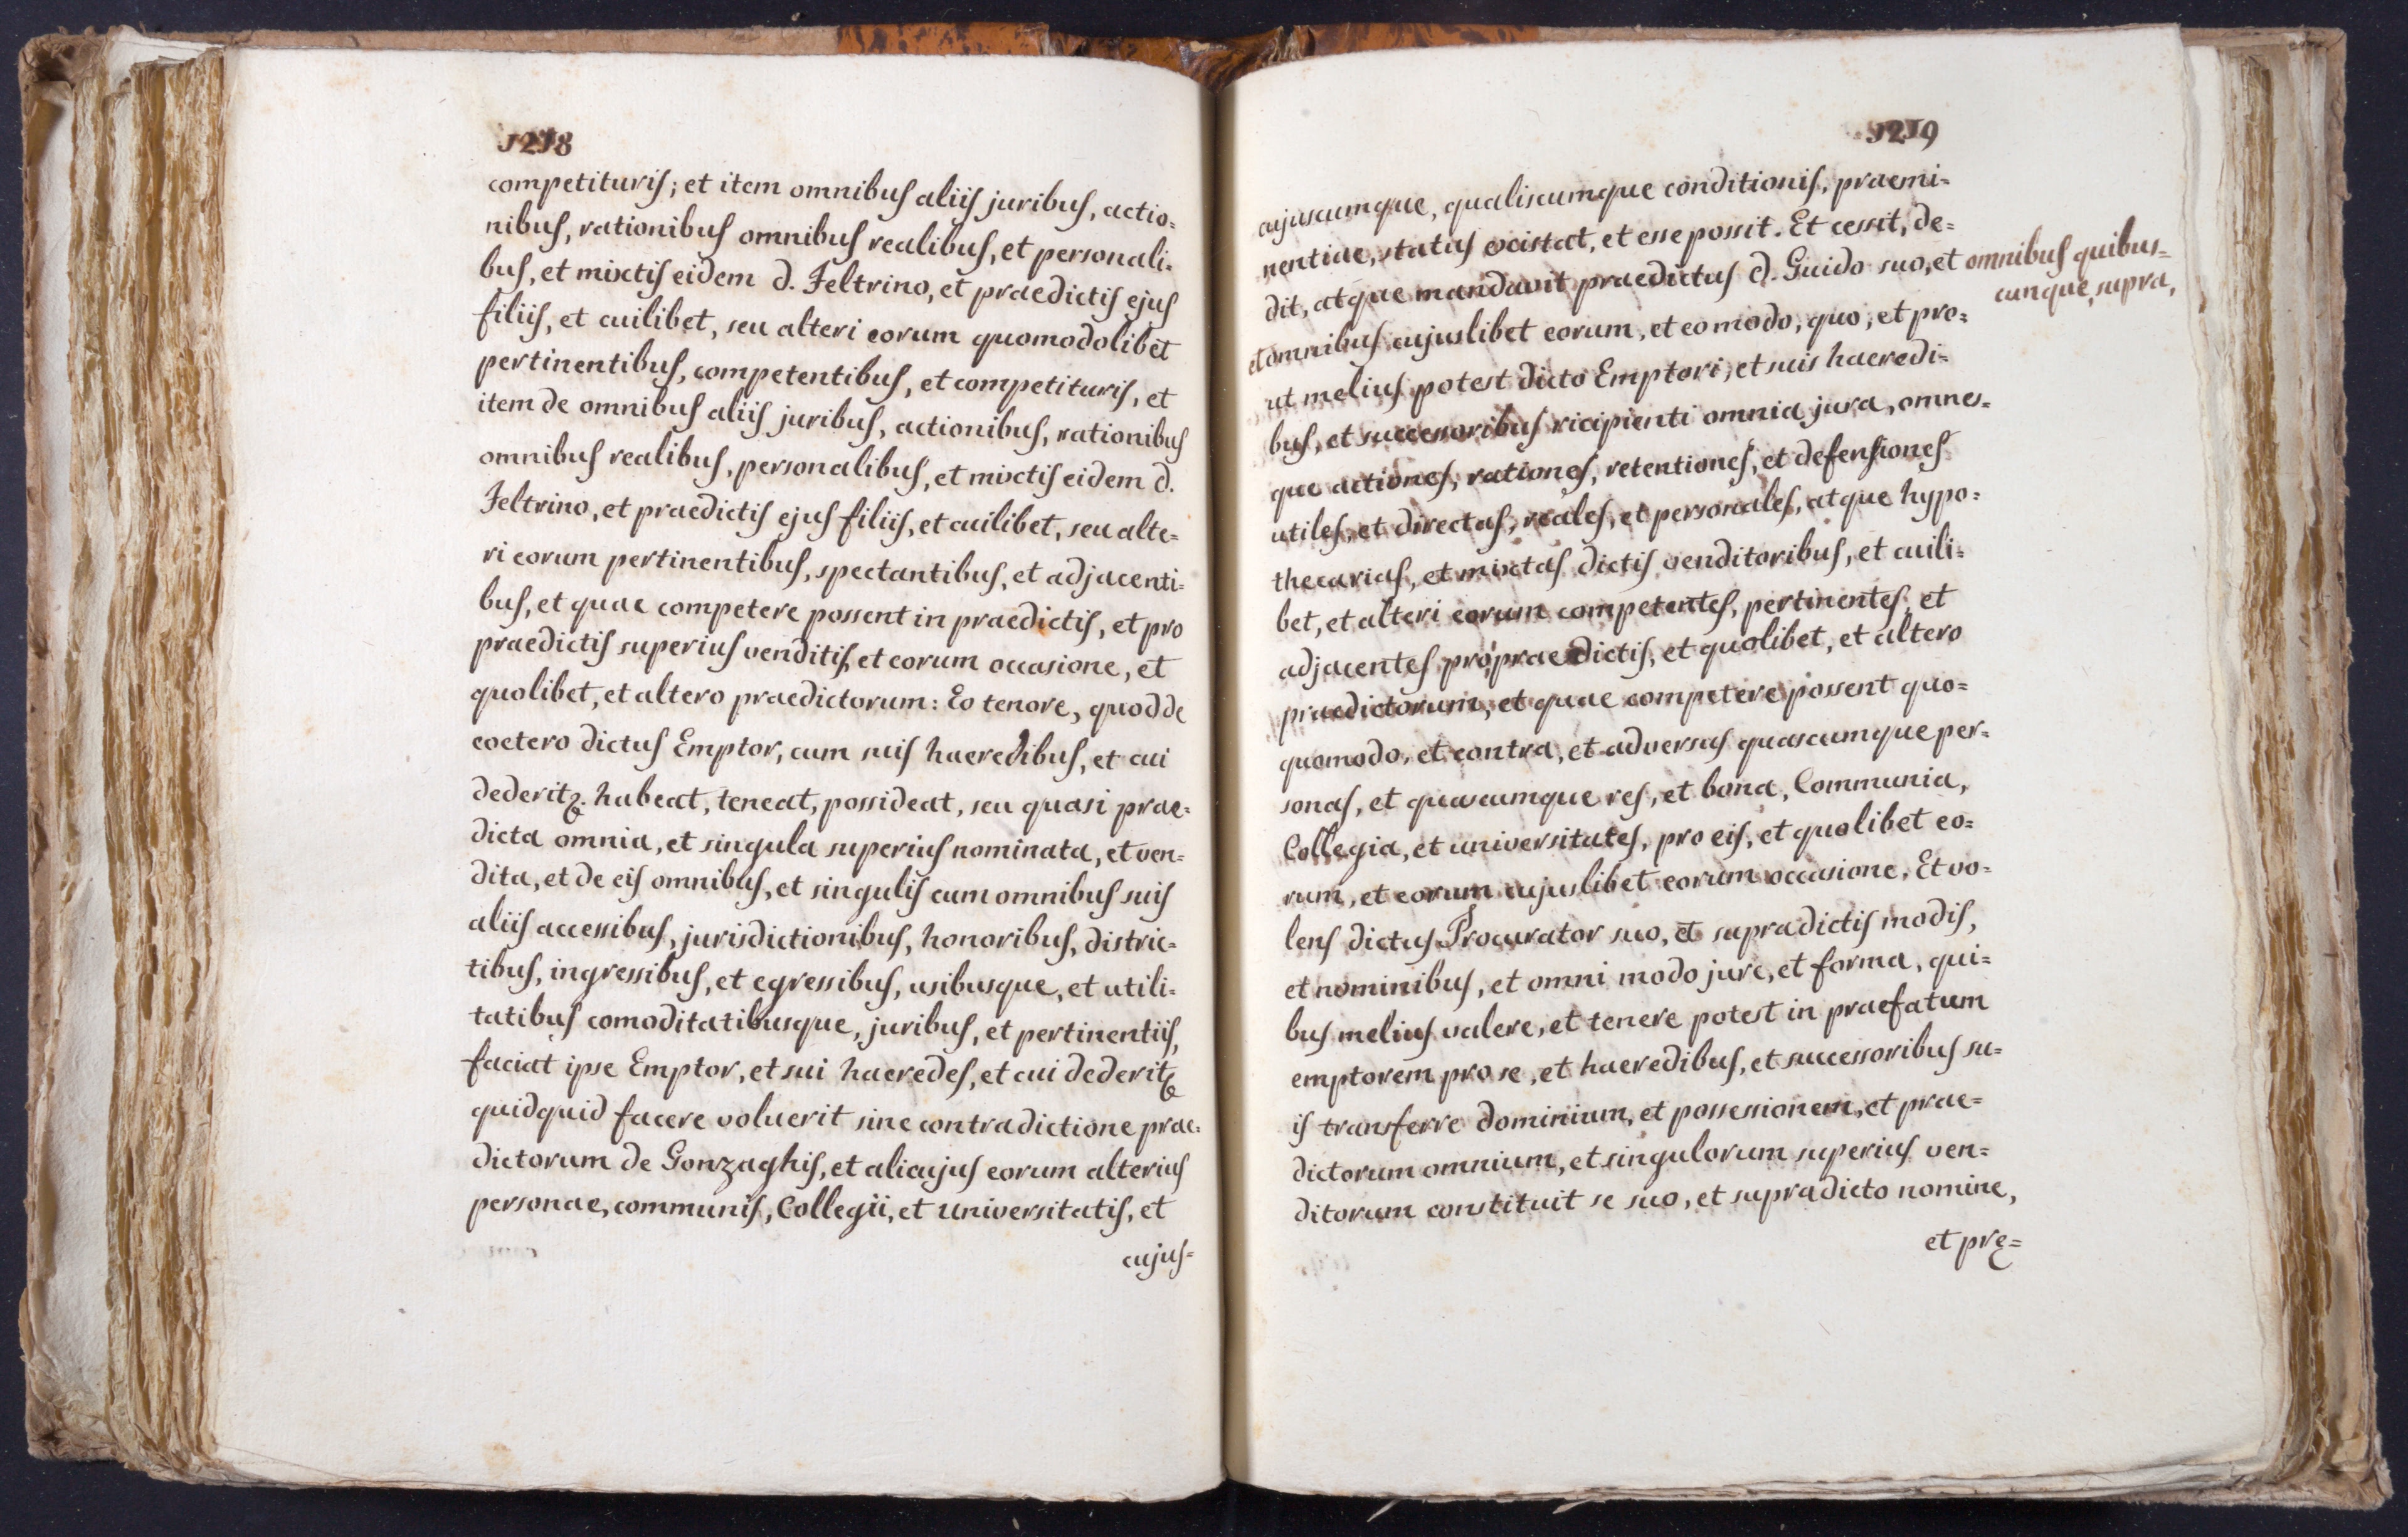 1218
competituris; et item omnibus aliis juribus, actio=
nibus, rationibus omnibus realibus, et personali=
bus, et mixtis eidem d. Feltrino, et praedictis ejus
filiis, et cuilibet, seu alteri eorum quomodolibet
pertinentibus, competentibus, et competituris, et
item de omnibus aliis juribus, actionibus, rationibus
omnibus realibus, personalibus, et mixtis eidem d.
Feltrino, et praedictis ejus filiis, et cuilibet, seu alte=
ri eorum pertinentibus, spectantibus, et adjacenti=
bus, et quae competere possent in praedictis, et pro
praedictis superius venditis, et eorum occasione, et
quolibet, et altero praedictorum: Eo tenore, quod de
coetero dictus Emptor, cum suis haeredibus, et cui
dederit &. habeat, teneat, possideat, seu quasi prae=
dicta omnia, et singula superius nominata, et ven=
dita, et de eis omnibus, et singulis cum omnibus suis
aliis accessibus, jurisdictionibus, honoribus, distric=
tibus, ingressibus, et egressibus, usibusque, et utili=
tatibus comoditatibusque, juribus, et pertinentiis,
faciat ipse Emptor, et sui haeredes, et cui dederit &
quidquid facere voluerit sine contradictione prae=
dictorum de Gonzaghis, et alicujus eorum alterius
personae, communis, Collegii, et universitatis, et
cujus=
1219
cujuscumque, qualiscumque conditionis, praemi=
nentiae, status existat, et esse possit. Et cessit, de=
dit, atque mandavit praedictus d. Guido suo, et omnibus quibus=
cunque, supra,
et omnibus cujuslibet eorum, et eo modo, quo, et pro=
ut melius potest dicto Emptori, et suis haeredi=
bus, et successoribus ricipienti omnia jura, omnes=
que actiones, rationes, retentiones, et defensiones
utiles, et directas, reales, et personales, atque hypo=
thecarias, et mixtas dictis venditoribus, et cuili=
bet, et alteri eorum competentes, pertinentes, et
adjacentes pro praedictis, et quolibet, et altero
praedictorum, et quae competere possent quo=
quomodo, et contra, et adversus quascumque per=
sonas, et quascumque res, et bona, Communia,
Collegia, et universitates, pro eis, et quolibet eo=
rum, et eorum cujuslibet eorum occasione. Et vo=
lens dictus Procurator suo, et supradictis modis,
et nominibus, et omni modo jure, et forma, qui=
bus melius valere, et tenere potest in praefatum
emptorem pro se, et haeredibus, et successoribus su=
is transferre dominium, et possessionem, et prae=
dictorum omnium, et singulorum superius ven=
ditorum constituit se suo, et supradicto nomine,
et prę=